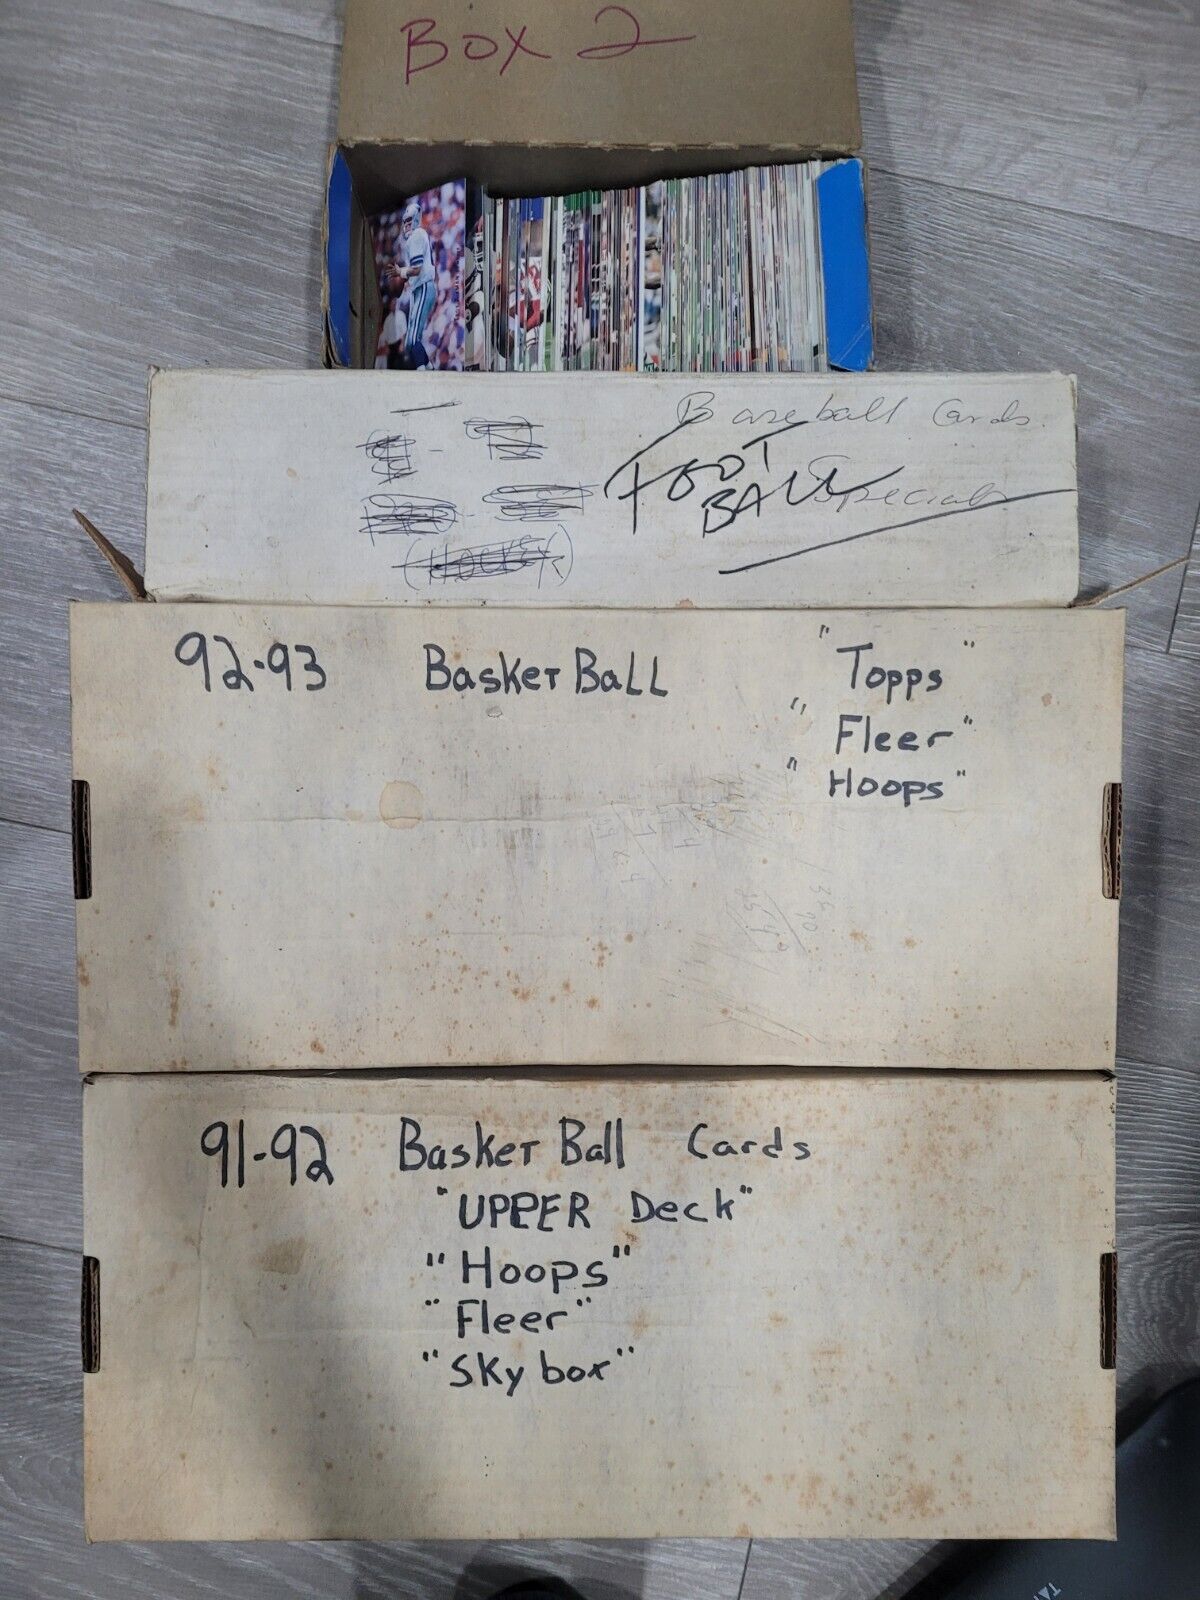 Box 2
Baseball Cards
FOOT
BALL
Specials
(Hockey)
92-93 BasketBall "Topps"
"Fleer"
"Hoops"
91-92 BasketBall Cards
"UPPER Deck"
"Hoops"
"Fleer"
"Sky box"